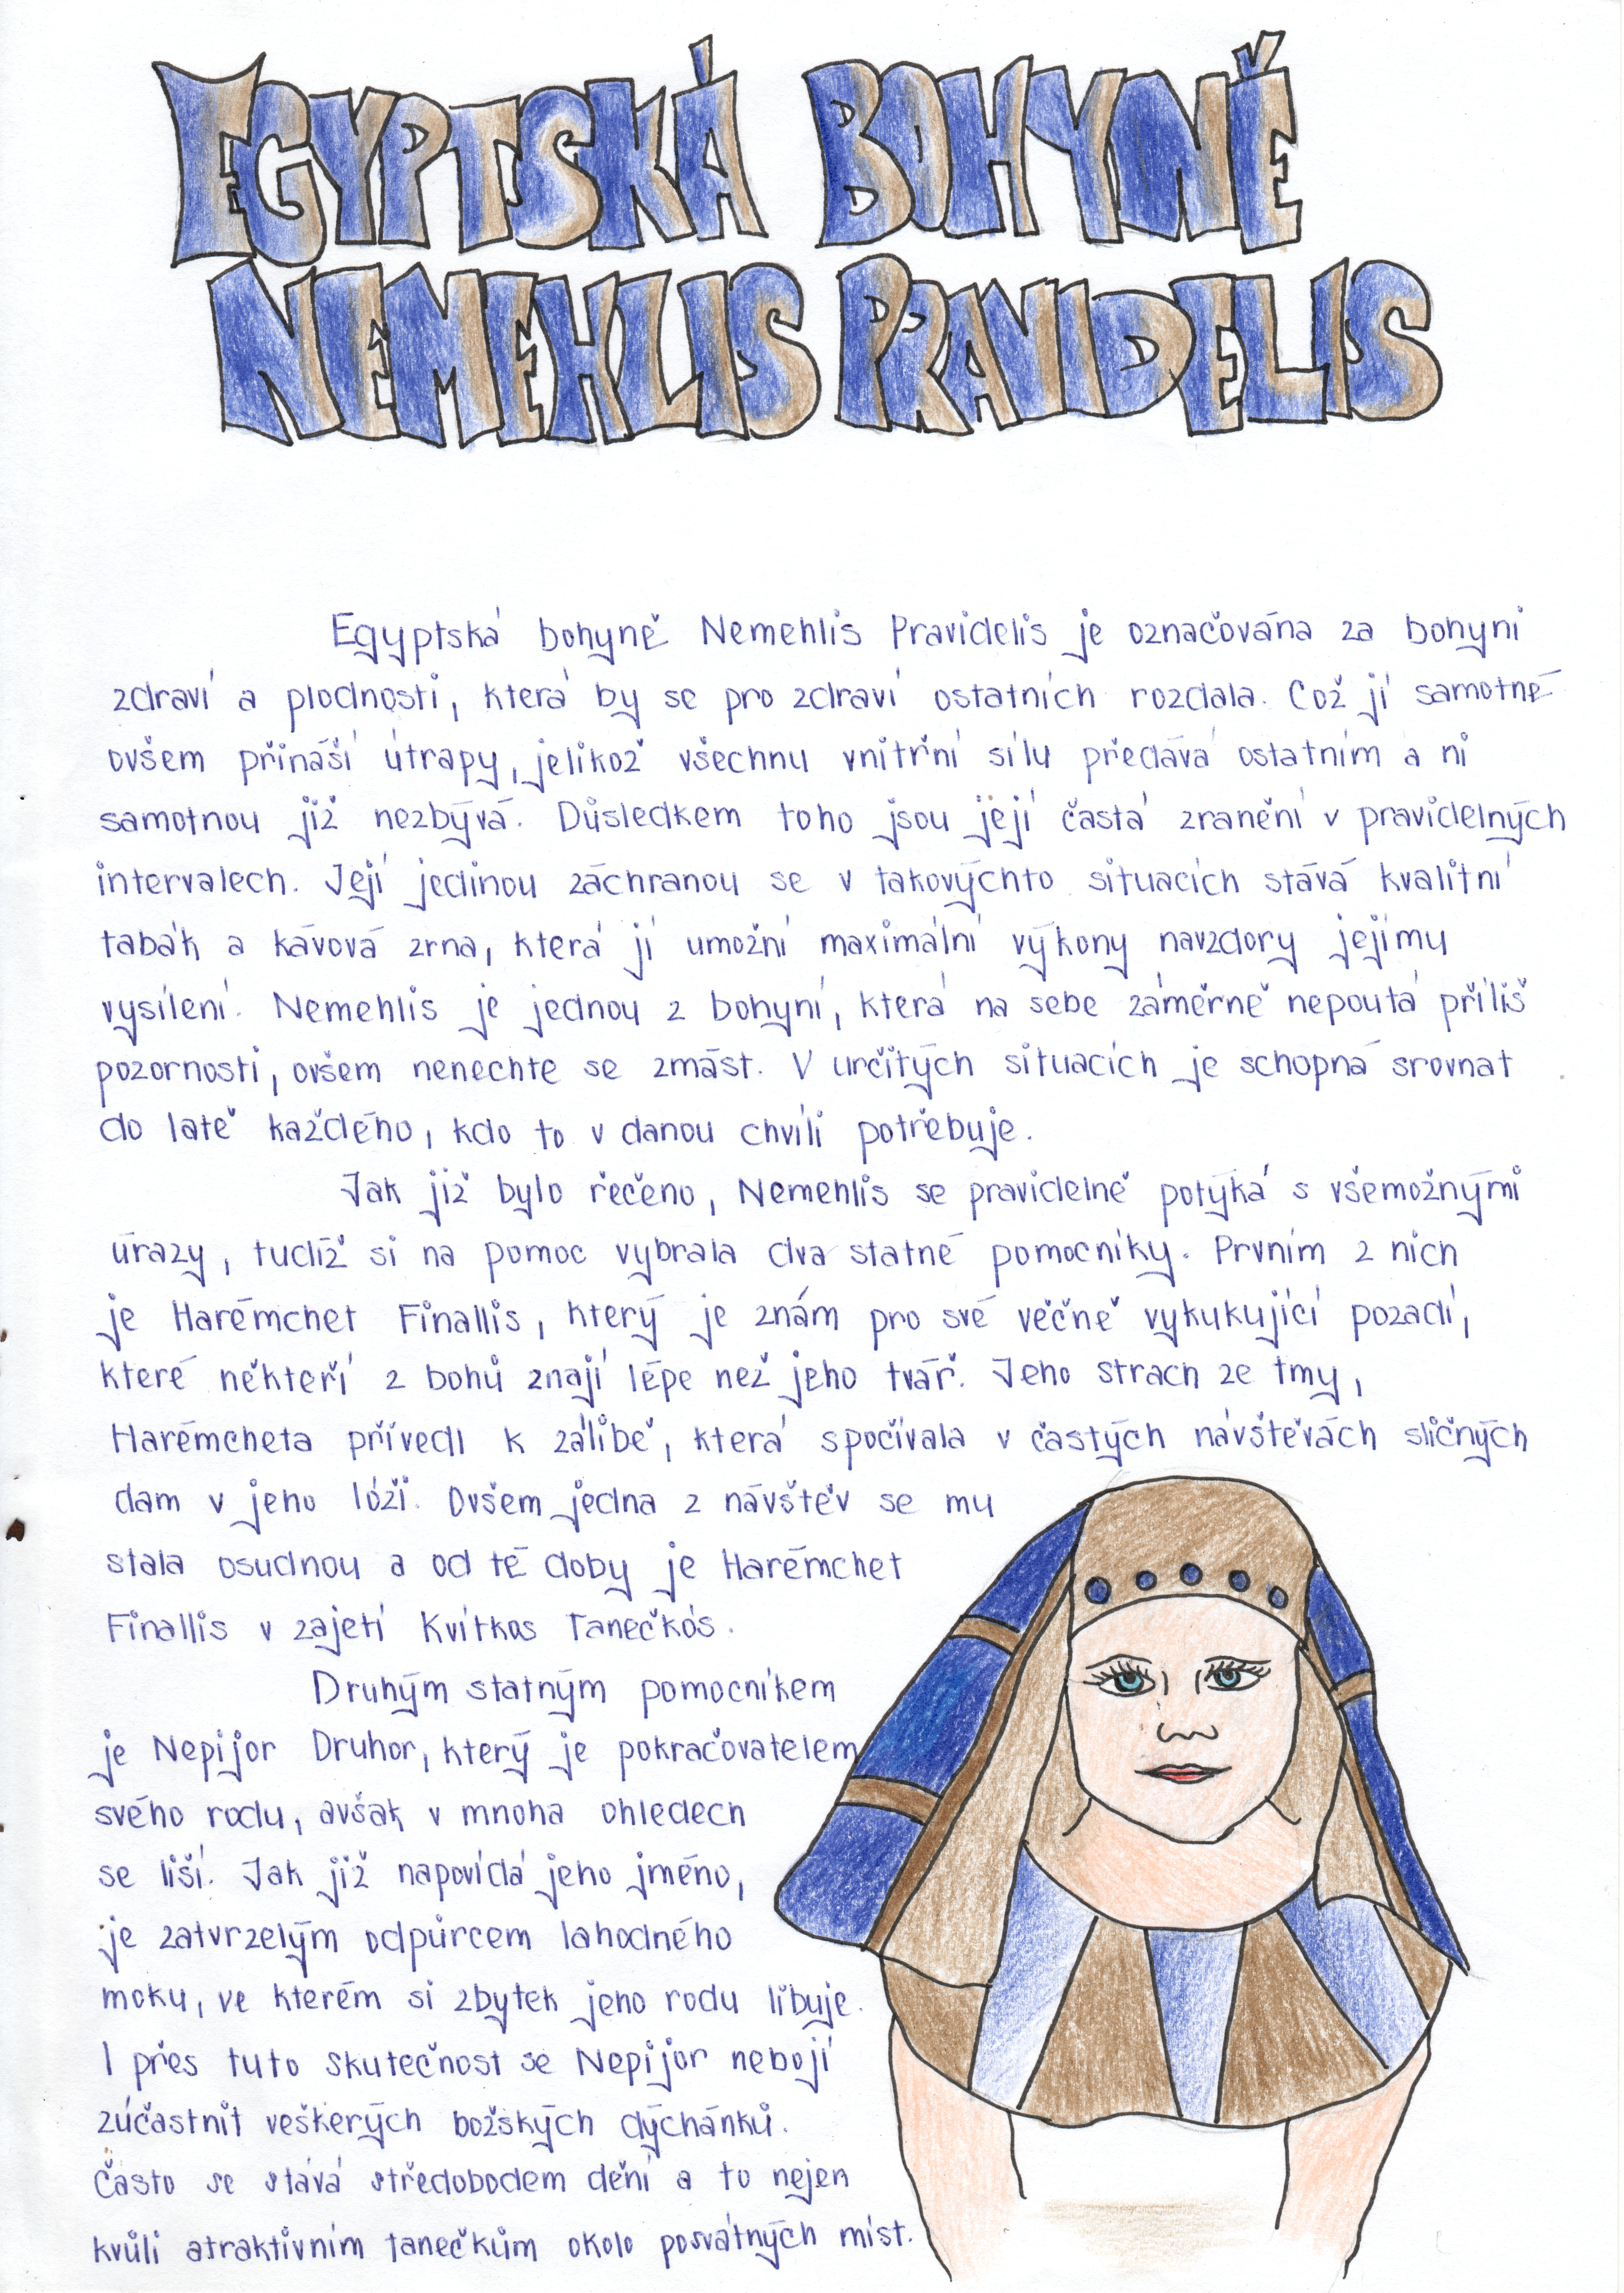 EGYPTSKÁ BOHYNĚ
NEMEHLIS PRAVIDELIS
Egyptská bohyně Nemehlis Pravidelis je označována za bohyni
zdraví a plodnosti, která by se pro zdraví ostatních rozdala. Což jí samotné
ovšem přináší útrapy, jelikož všechnu vnitřní sílu předává ostatním a ní
samotnou již nezbývá. Důsledkem toho jsou její častá zranění v pravidelných
intervalech. Její jedinou záchranou se v takovýchto situacích stává kvalitní
tabák a kávová zrna, která jí umožní maximální výkony navzdory jejímu
vysílení. Nemehlis je jednou z bohyní, která na sebe záměrně nepoutá příliš
pozornosti, ovšem nenechte se zmást. V určitých situacích je schopná srovnat
do latě každého, kdo to v danou chvíli potřebuje.
Jak již bylo řečeno, Nemehlis se pravidelně potýká s všemožnými
úrazy, tudíž si na pomoc vybrala dva statné pomocníky. Prvním z nich
je Harémchet Finallis, který je znám pro své věčně vykukující pozadí,
které někteří z bohů znají lépe než jeho tvář. Jeho strach ze tmy,
Harémcheta přivedl k zálibě, která spočívala v častých návštěvách sličných
dam v jeho lóži. Ovšem jedna z návštěv se mu
stala osudnou a od té doby je Harémchet
Finallis v zajetí Kvítkos Tanečkós.
Druhým statným pomocníkem
je Nepijor Druhor, který je pokračovatelem
svého rodu, avšak v mnoha ohledech
se liší. Jak již napovídá jeho jméno,
je zatvrzelým odpůrcem lahodného
moku, ve kterém si zbytek jeho rodu libuje.
I přes tuto skutečnost se Nepijor nebojí
zúčastnit veškerých božských dýchánků.
Často se stává středobodem dění a to nejen
kvůli atraktivním tanečkům okolo posvátných míst.